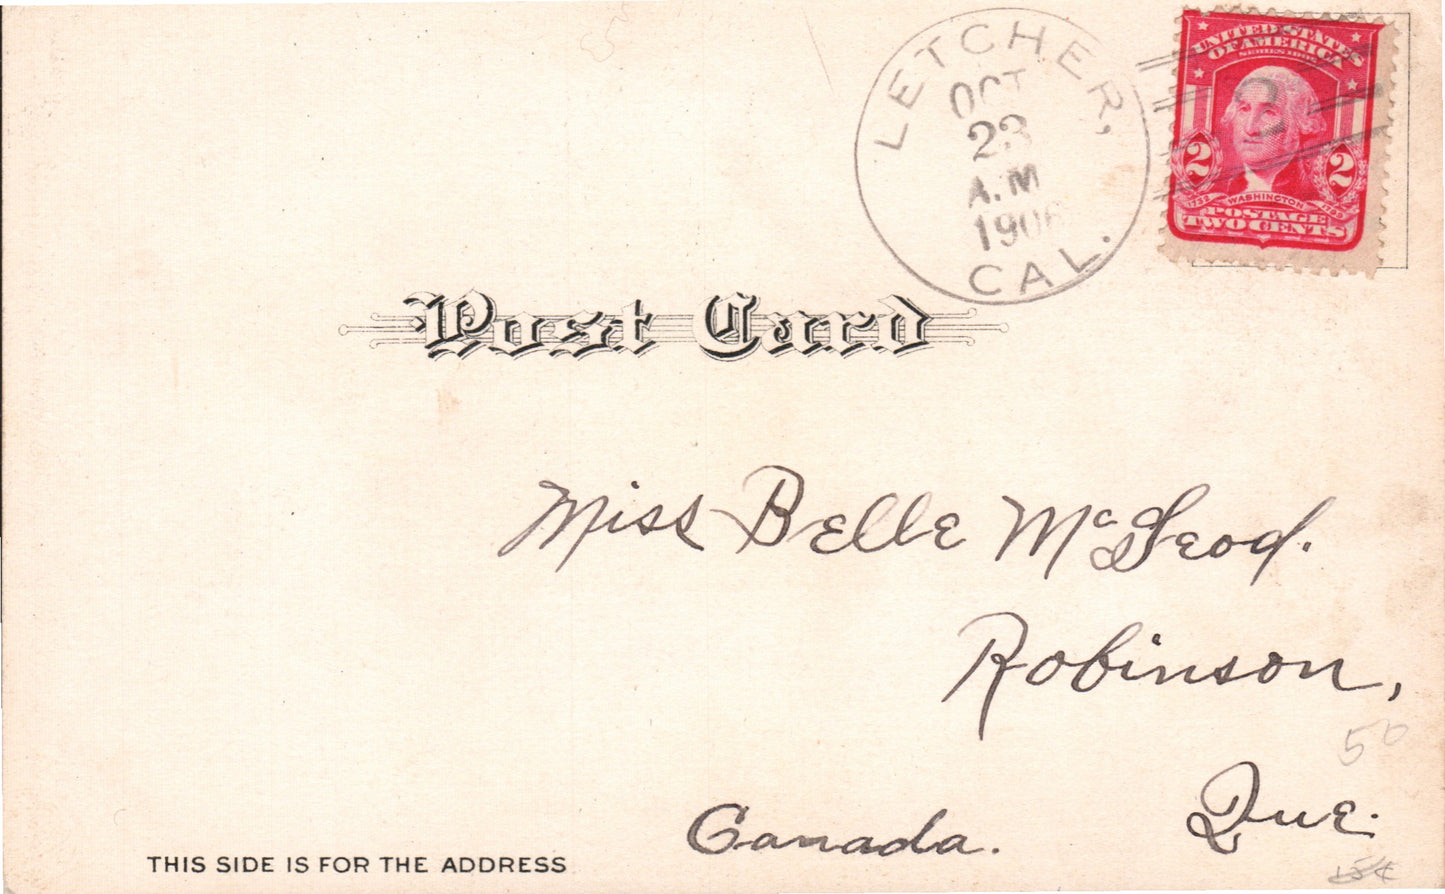 LETCHER,
OCT
23
A.M
1906
CAL.
UNITED STATES
OF AMERICA
SERIES 1902
2 2
1732 WASHINGTON 1799
POSTAGE
TWO CENTS
Post Card
Miss Belle McLeod.
Robinson,
50
Que.
Canada.
THIS SIDE IS FOR THE ADDRESS